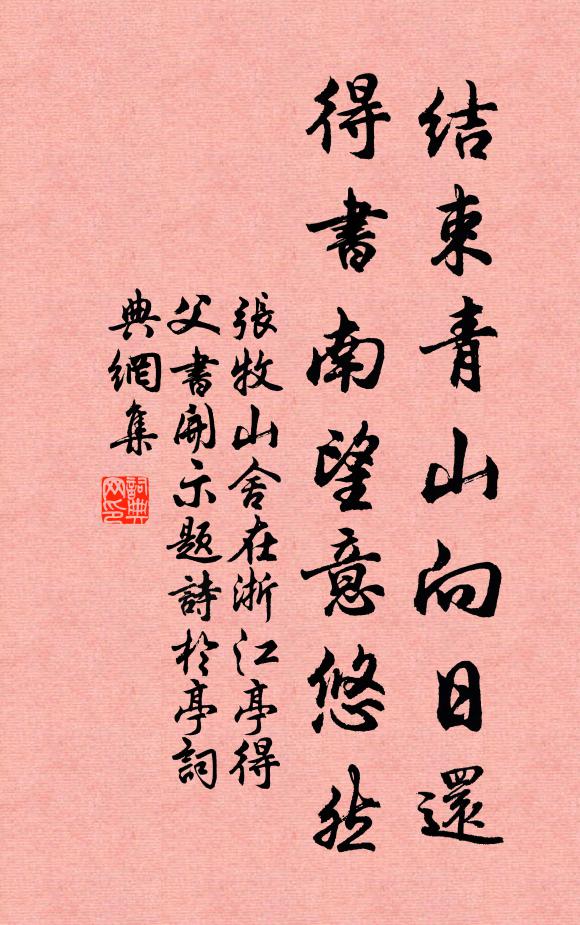 結束青山向日還
得書南望意悠然
張牧山舍在浙江亭得
父書開示題詩於亭詞
典網集
詞典
网印